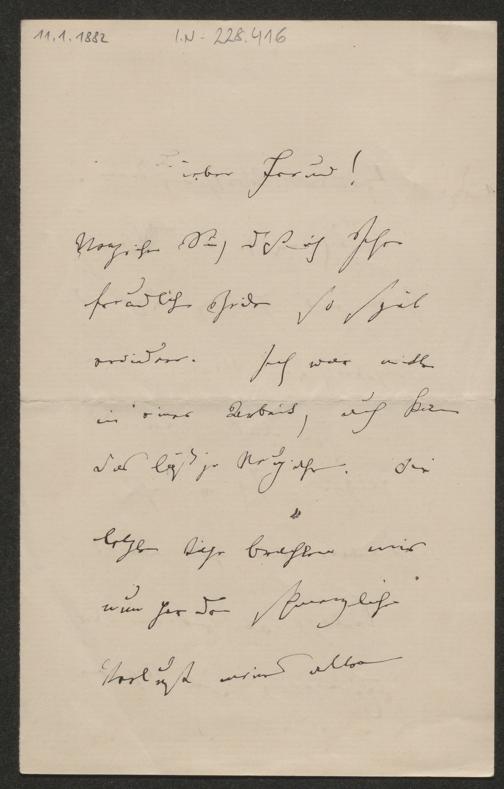 11.1.1882 I.N - 228.416
Lieber Freund!
Verzeihen Sie, daß ich Ihre
freundlichen so spät
erwidere. Ich war mitten
in einer Arbeit, auch kam
das lästige Neujahr. Die
letzten Tage brachten mir
nun gar den schmerzlichen
Verlust meines alten